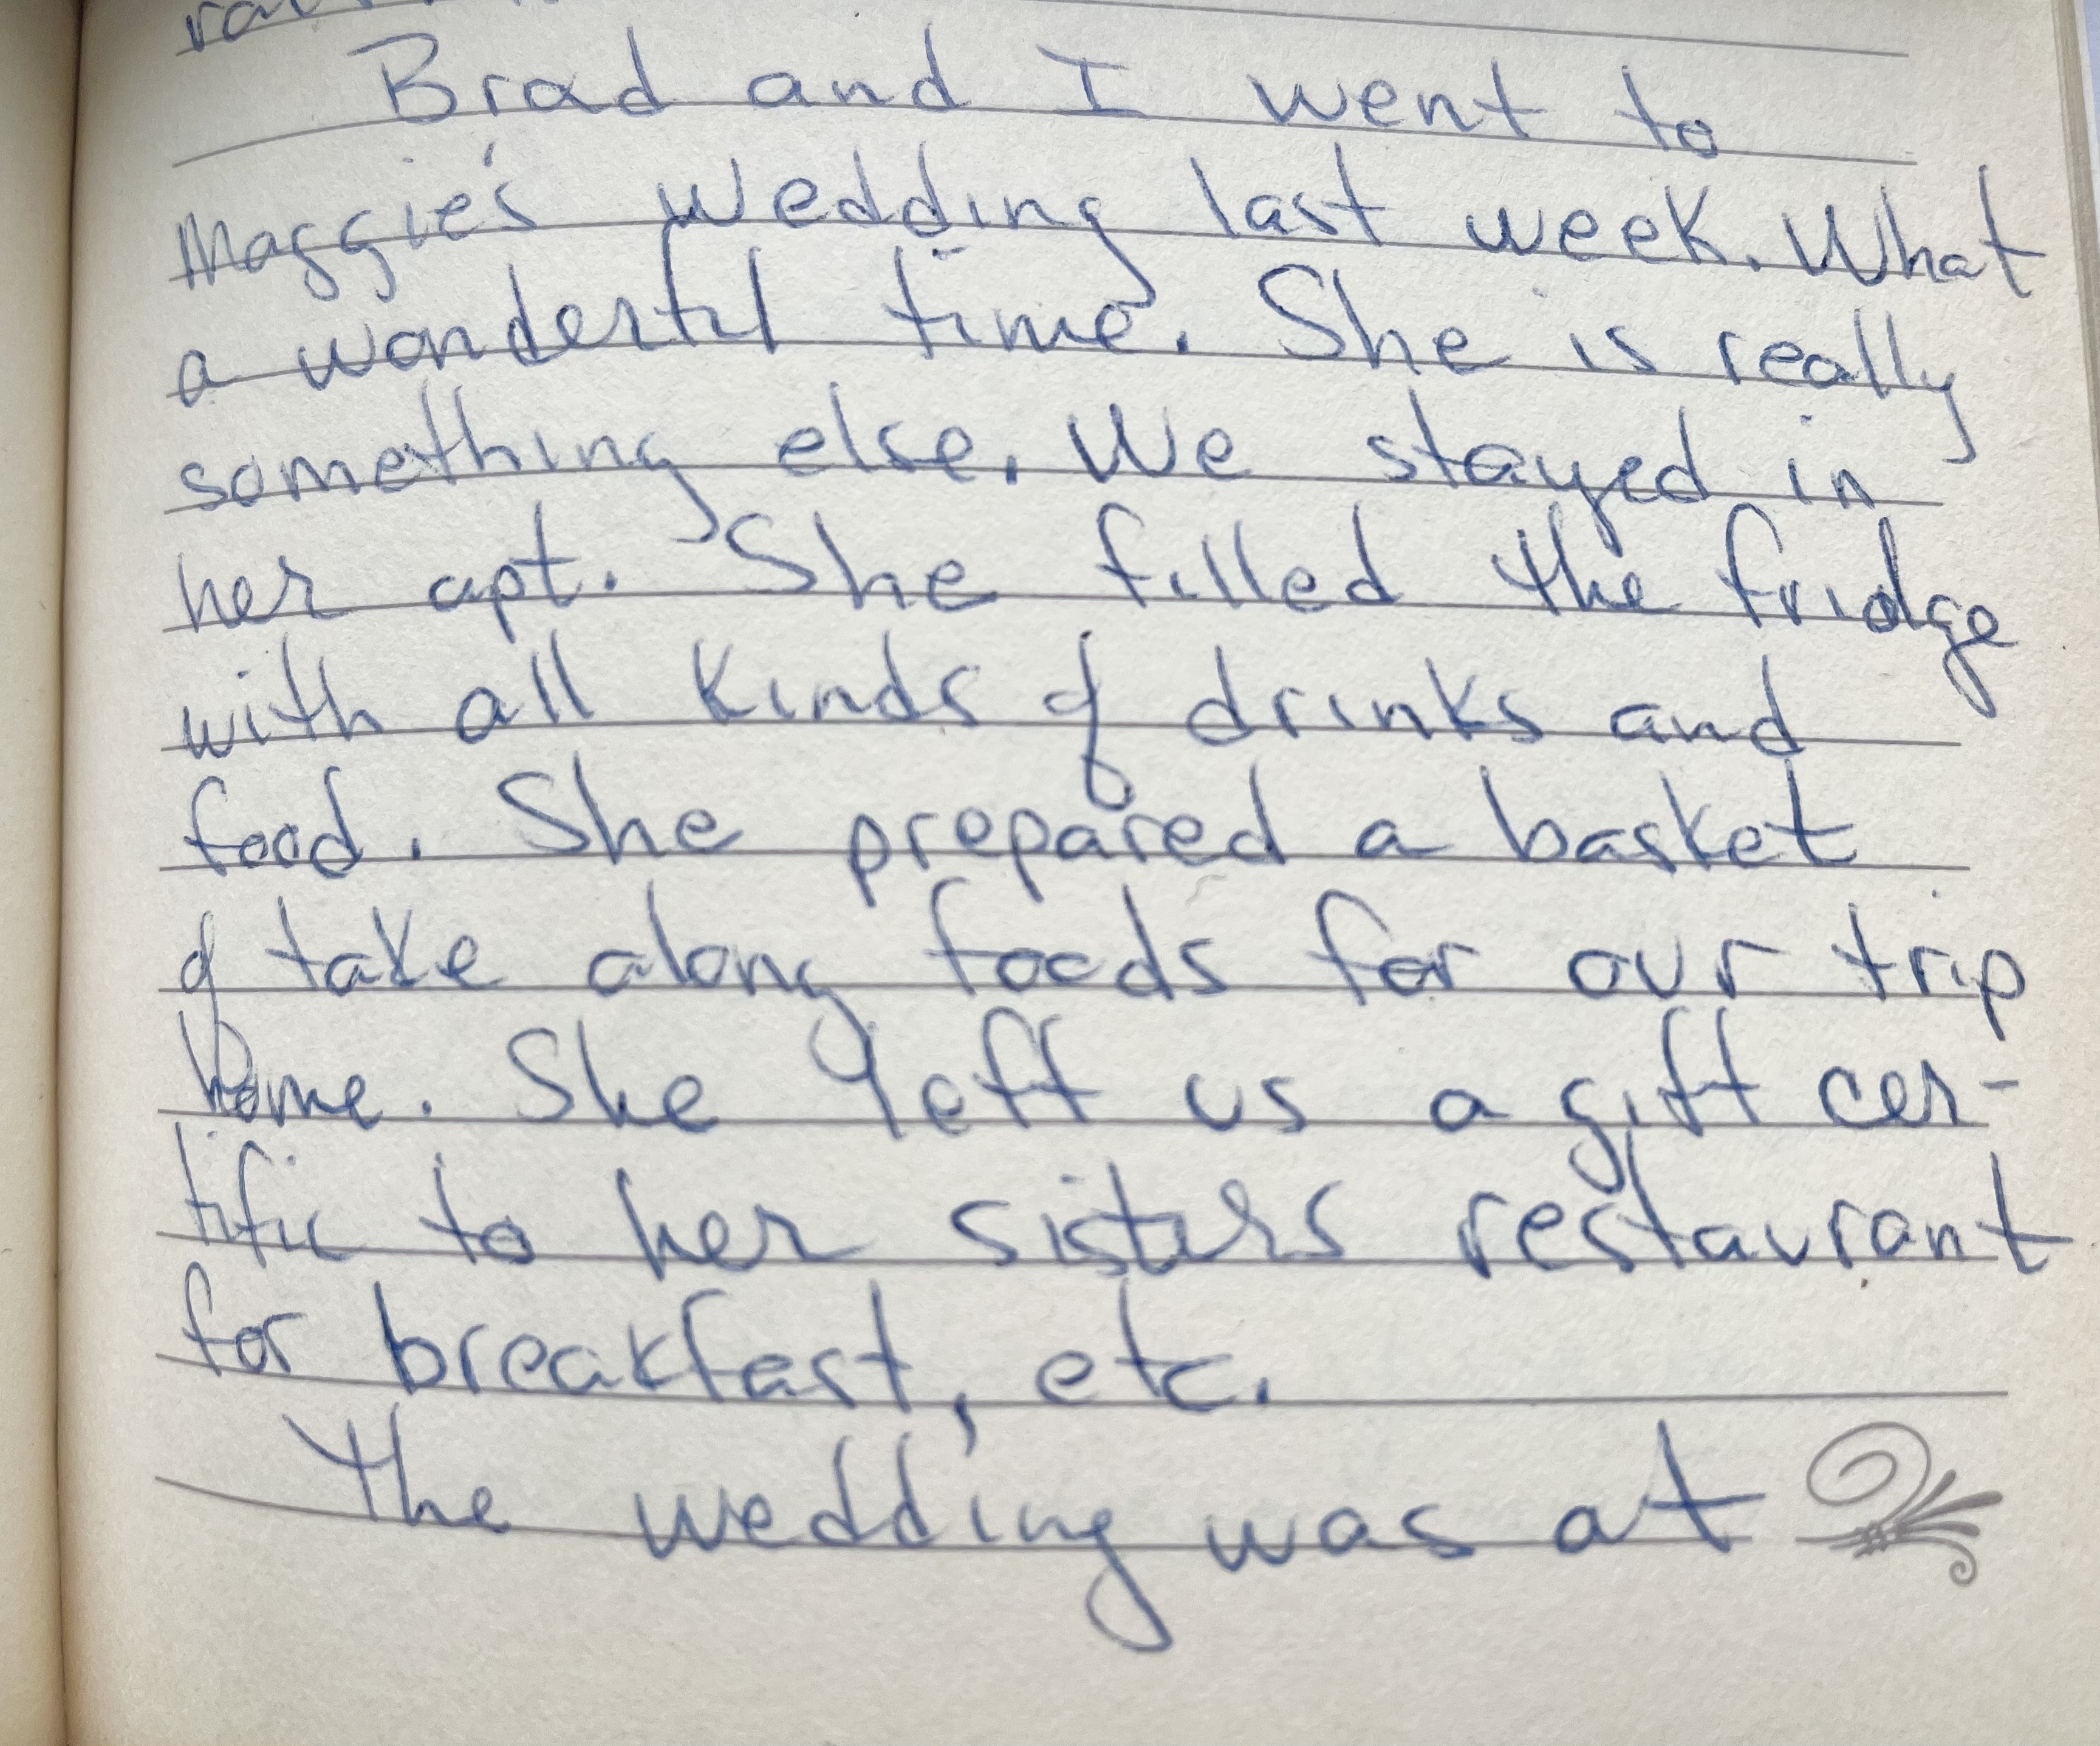 Brad and I went to
Maggie's wedding last week. What
a wonderful time. She is really
something else. We stayed in
her apt. She filled the fridge
with all kinds of drinks and
food. She prepared a basket
of take along foods for our trip
home. She left us a gift cer-
tific to her sisters restaurant
for breakfast, etc.
The wedding was at